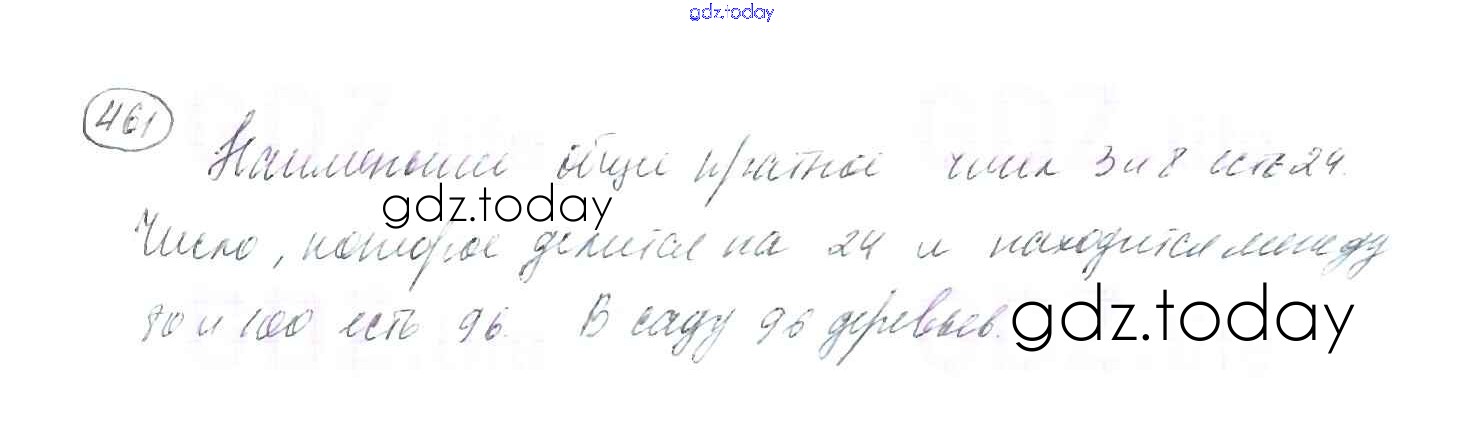 gdz.today
461
Наименьшее общее кратное чисел 3 и 8 есть 24.
gdz.today
Число, которое делится на 24 и находится между
90 и 100 есть 96. В саду 96 деревьев.
gdz.today